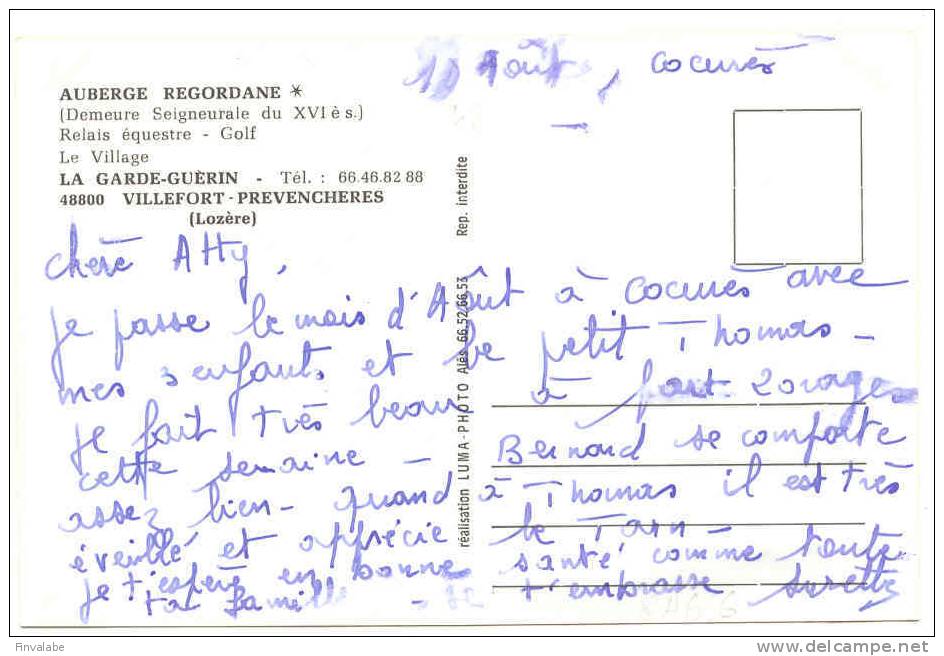 Août, Cocurès
AUBERGE REGORDANE *
(Demeure Seigneurale du XVI è s.)
Relais équestre - Golf
Le Village
LA GARDE-GUÈRIN - Tél. : 66.46.82 88
48800 VILLEFORT - PREVENCHERES
(Lozère)
Rep. interdite
réalisation LUMA-PHOTO Alès 66.52.66.53
Chère Atty,
je passe le mois d'Août à Cocurès avec
mes 3 enfants et le petit Thomas -
je fait très beau à part 2 orages
cette semaine - Bernard se comporte
assez bien - quand à Thomas il est très
éveillé et apprécie le Tarn -
je t'espère en bonne santé comme toute
ta famille - je t'embrasse
Finvalabe
delcampe.net